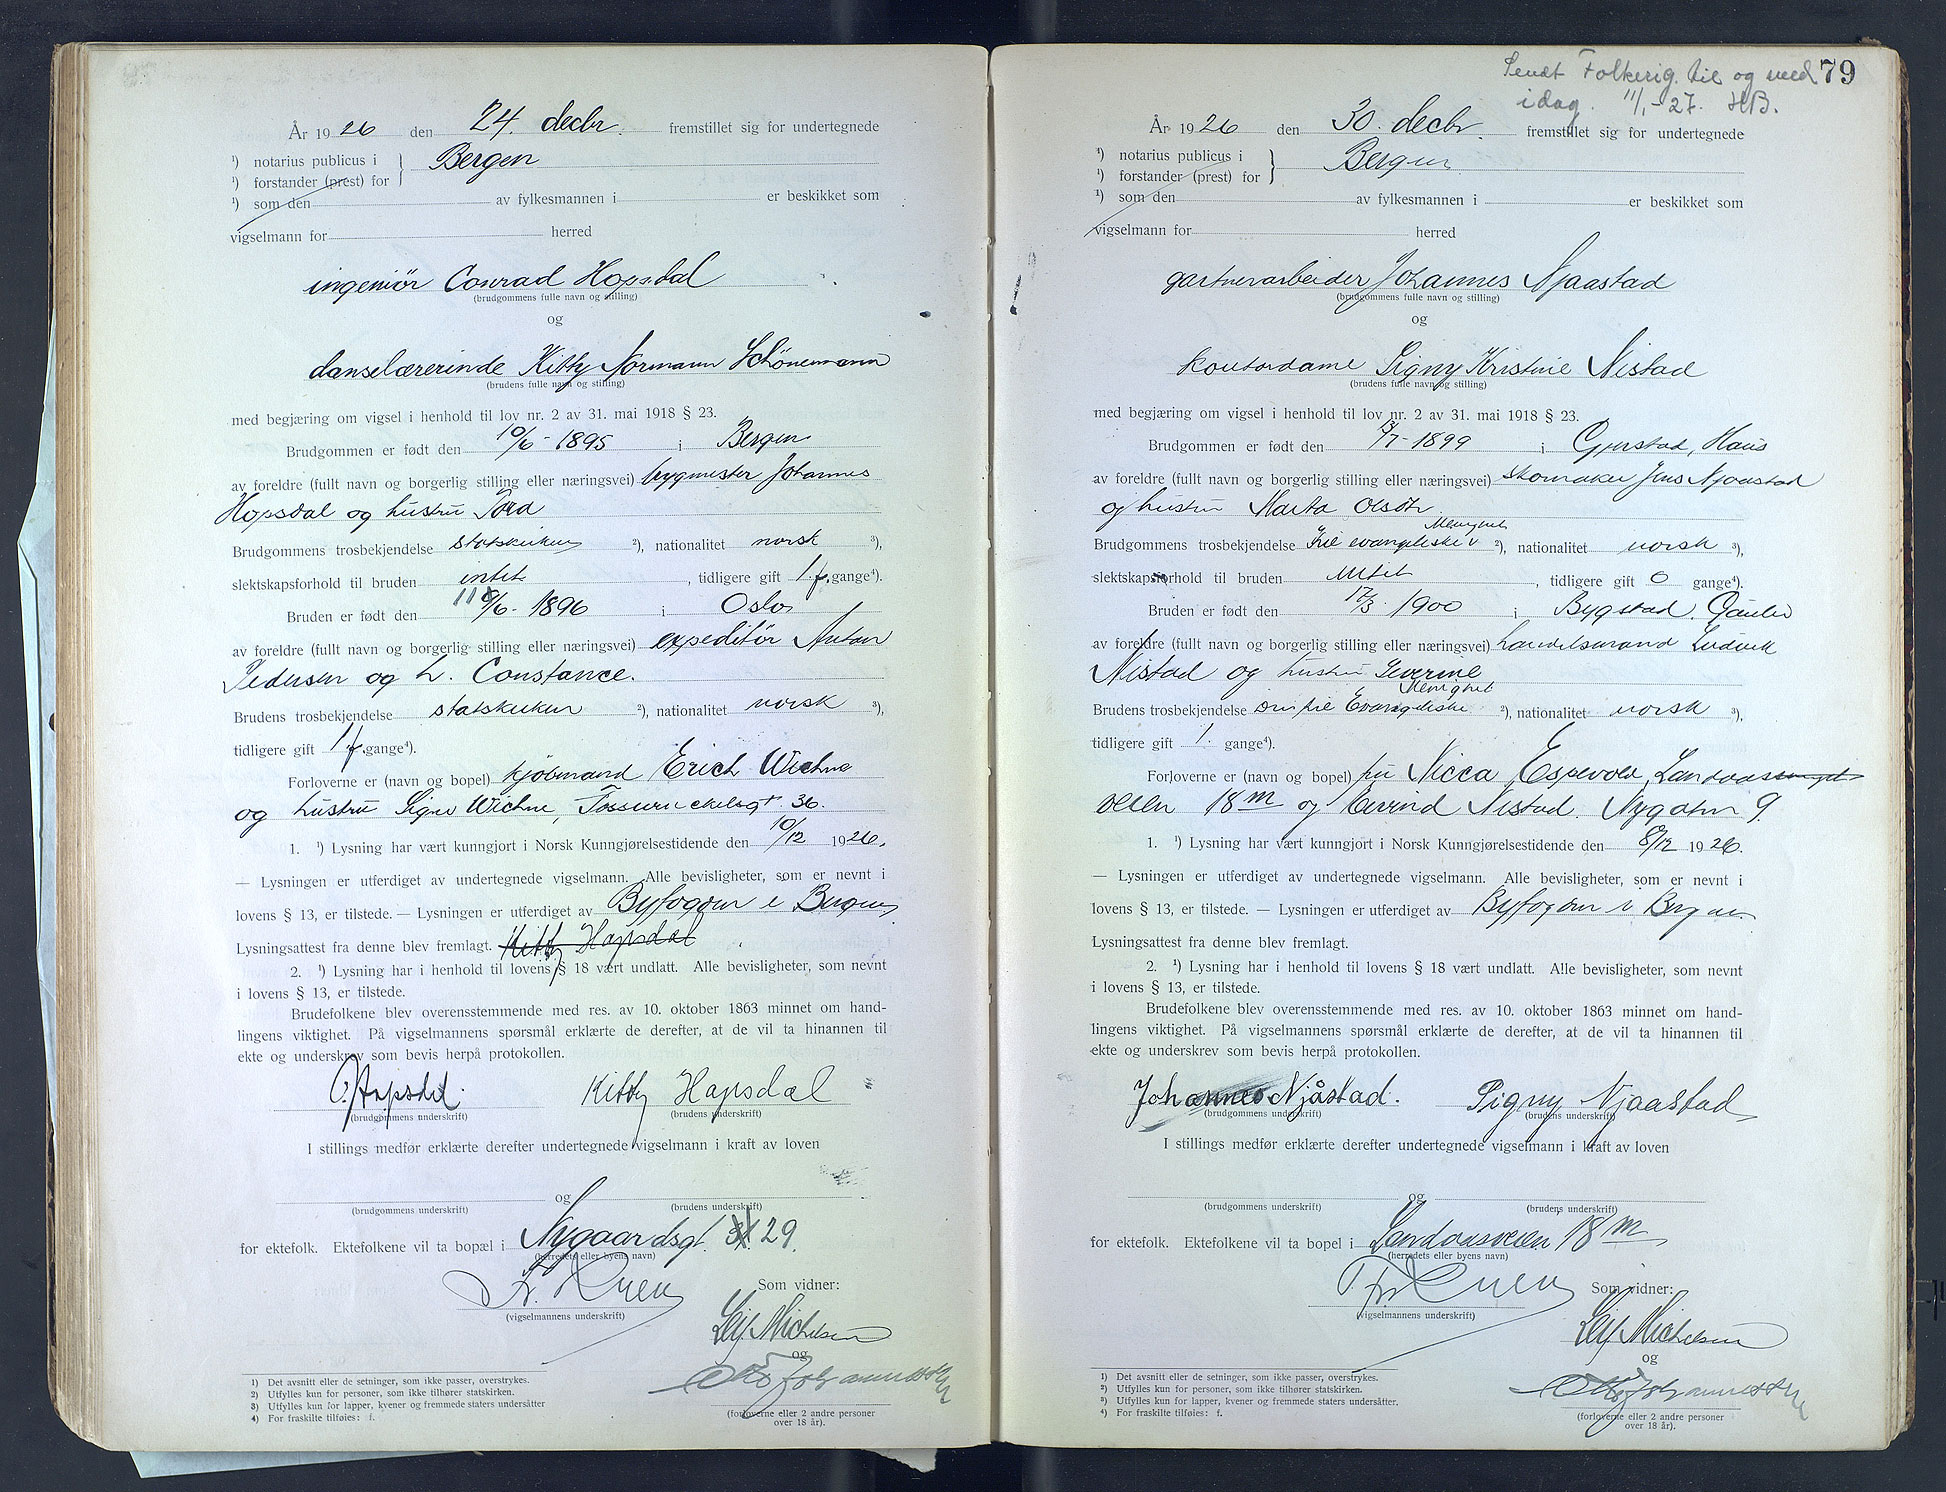 År 1926 den 24. decbr. fremstillet sig for undertegnede
¹) notarius publicus i } Bergen
¹) forstander (prest) for
¹) som den av fylkesmannen i er beskikket som
vigselmann for herred
ingeniør Conrad Hopsdal
(brudgommens fulle navn og stilling)
og
danselærerinde Kitty Normann Schönemann
(brudens fulle navn og stilling)
med begjæring om vigsel i henhold til lov nr. 2 av 31. mai 1918 § 23.
Brudgommen er født den 10/6 - 1895 i Bergen
av foreldre (fullt navn og borgerlig stilling eller næringsvei) bygmester Johannes
Hopsdal og hustru
Brudgommens trosbekjendelse statskirken ²), nationalitet norsk ³),
slektskapsforhold til bruden intet, tidligere gift 1 f. gange⁴).
Bruden er født den /6 - 1896 i Oslo
av foreldre (fullt navn og borgerlig stilling eller næringsvei) expeditør Anton
Pedersen og h. Constance.
Brudens trosbekjendelse statskirken ²), nationalitet norsk ³),
tidligere gift 1 f. gange⁴).
Forloverne er (navn og bopel) kjøbmand Erich Wichne
og hustru Signe Wichne, Fosswinckelsgt. 36.
1. ¹) Lysning har vært kunngjort i Norsk Kunngjørelsestidende den 10/12 1926.
— Lysningen er utferdiget av undertegnede vigselmann. Alle bevisligheter, som er nevnt i
lovens § 13, er tilstede. — Lysningen er utferdiget av Byfogden i Bergen
Lysningsattest fra denne blev fremlagt. Kitty Hopsdal
2. ¹) Lysning har i henhold til lovens § 18 vært undlatt. Alle bevisligheter, som nevnt
i lovens § 13, er tilstede.
Brudefolkene blev overensstemmende med res. av 10. oktober 1863 minnet om hand-
lingens viktighet. På vigselmannens spørsmål erklærte de derefter, at de vil ta hinannen til
ekte og underskrev som bevis herpå protokollen.
C. Hopsdal. Kitty Hopsdal
(brudgommens underskrift) (brudens underskrift)
I stillings medfør erklærte derefter undertegnede vigselmann i kraft av loven
og
(brudgommens underskrift) (brudens underskrift)
for ektefolk. Ektefolkene vil ta bopæl i Nygaardsgt. 29.
(herredets eller byens navn)
Som vidner:
(vigselmannens underskrift)
Leif Michelsen
og
Otto Johannessen
(forloverne eller 2 andre personer
over 18 år).
1) Det avsnitt eller de setninger, som ikke passer, overstrykes.
2) Utfylles kun for personer, som ikke tilhører statskirken.
3) Utfylles kun for lapper, kvener og fremmede staters undersåtter
4) For fraskilte tilføies: f.
Sendt Folkereg. til og med 79
idag. 11/1 - 27. HB.
År 1926 den 30. decbr. fremstillet sig for undertegnede
¹) notarius publicus i } Bergen
¹) forstander (prest) for
¹) som den av fylkesmannen i er beskikket som
vigselmann for herred
gartnerarbeider Johannes Njaastad
(brudgommens fulle navn og stilling)
og
kontordame Signy Kristine Nistad
(brudens fulle navn og stilling)
med begjæring om vigsel i henhold til lov nr. 2 av 31. mai 1918 § 23.
Brudgommen er født den /7 - 1899 i Gjerstad, Haus
av foreldre (fullt navn og borgerlig stilling eller næringsvei) skomaker Jens Njaastad
og hustru Marta Olsdtr
Brudgommens trosbekjendelse Frie evangeliske Menighet ²), nationalitet norsk ³),
slektskapsforhold til bruden intet, tidligere gift 0 gange⁴).
Bruden er født den 17/3 1900 i Bygstad, Gaular
av foreldre (fullt navn og borgerlig stilling eller næringsvei) handelsmand Ludvik
Nistad og hustru Severine
Brudens trosbekjendelse Evangeliske Menighet ²), nationalitet norsk ³),
tidligere gift 1. gange⁴).
Forloverne er (navn og bopel) fru Nicca Espevold, Landaas
veien 18 m og Eivind Nistad. Nygaten 9.
1. ¹) Lysning har vært kunngjort i Norsk Kunngjørelsestidende den 8/12 1926.
— Lysningen er utferdiget av undertegnede vigselmann. Alle bevisligheter, som er nevnt i
lovens § 13, er tilstede. — Lysningen er utferdiget av Byfogden i Bergen
Lysningsattest fra denne blev fremlagt.
2. ¹) Lysning har i henhold til lovens § 18 vært undlatt. Alle bevisligheter, som nevnt
i lovens § 13, er tilstede.
Brudefolkene blev overensstemmende med res. av 10. oktober 1863 minnet om hand-
lingens viktighet. På vigselmannens spørsmål erklærte de derefter, at de vil ta hinannen til
ekte og underskrev som bevis herpå protokollen.
Johannes Njåstad. Signy Njaastad
(brudgommens underskrift) (brudens underskrift)
I stillings medfør erklærte derefter undertegnede vigselmann i kraft av loven
og
(brudgommens underskrift) (brudens underskrift)
for ektefolk. Ektefolkene vil ta bopel i Landaasveien 18 m
(herredets eller byens navn)
Som vidner:
(vigselmannens underskrift)
Leif Michelsen
og
Otto Johannessen
(forloverne eller 2 andre personer
over 18 år).
1) Det avsnitt eller de setninger, som ikke passer, overstrykes.
2) Utfylles kun for personer, som ikke tilhører statskirken.
3) Utfylles kun for lapper, kvener og fremmede staters undersåtter.
4) For fraskilte tilføies: f.